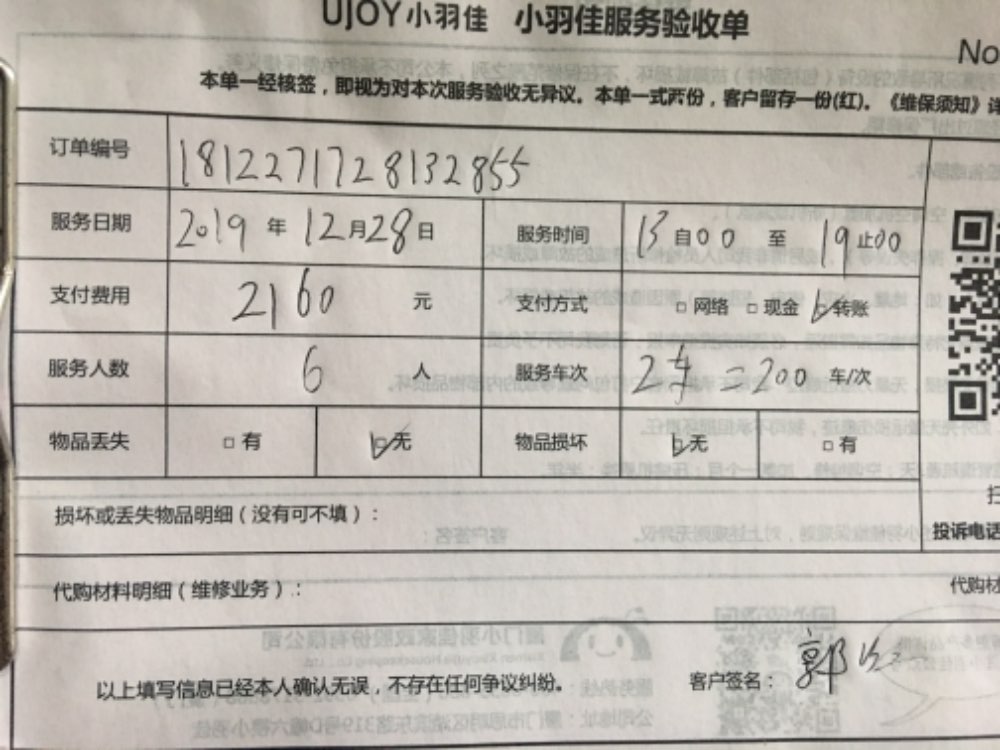 UJOY小羽佳 小羽佳服务验收单
No
本单一经核签，即视为对本次服务验收无异议。本单一式两份，客户留存一份(红)。《维保须知》详
订单编号 1812271728132855
服务日期 2019 年 12月28日 服务时间 13自00 至 19止00
支付费用 2160 元 支付方式 □网络 □现金 ☑转账
服务人数 6 人 服务车次 =200 车/次
物品丢失 □有 ☑无 物品损坏 ☑无 □有
损坏或丢失物品明细（没有可不填）：
投诉电话
代购材料明细（维修业务）： 代购材
以上填写信息已经本人确认无误，不存在任何争议纠纷。 客户签名：郭